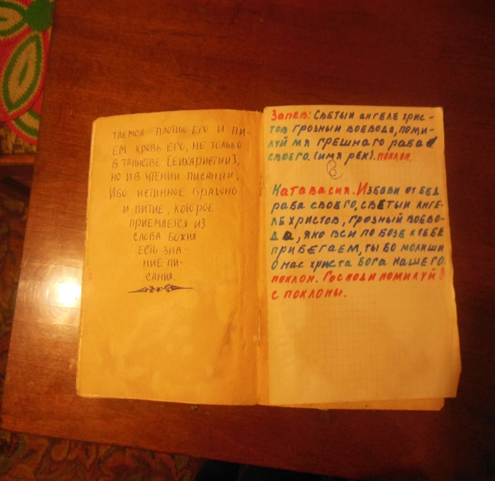 таемся плотию его и пи-
ем кровь его, не только
в таинстве [евхаристии],
но и в чтении писания.
Ибо истинное брашно
и питие, которое
приемлется из
слова божия
есть зна-
ние пи-
сания.
Запев: Святыи ангеле хрис-
тов грозныи воевода, поми-
луй мя грешнаго раба
своего. (имя рек). поклон.
Катавасия. Избави от бед
раба своего, святыи анге-
ле христов, грозныи воево-
да, яко вси по бозе к тебе
прибегаем, ты бо молиши
о нас христа бога нашего.
поклон. Господи помилуй 3
с поклоны.